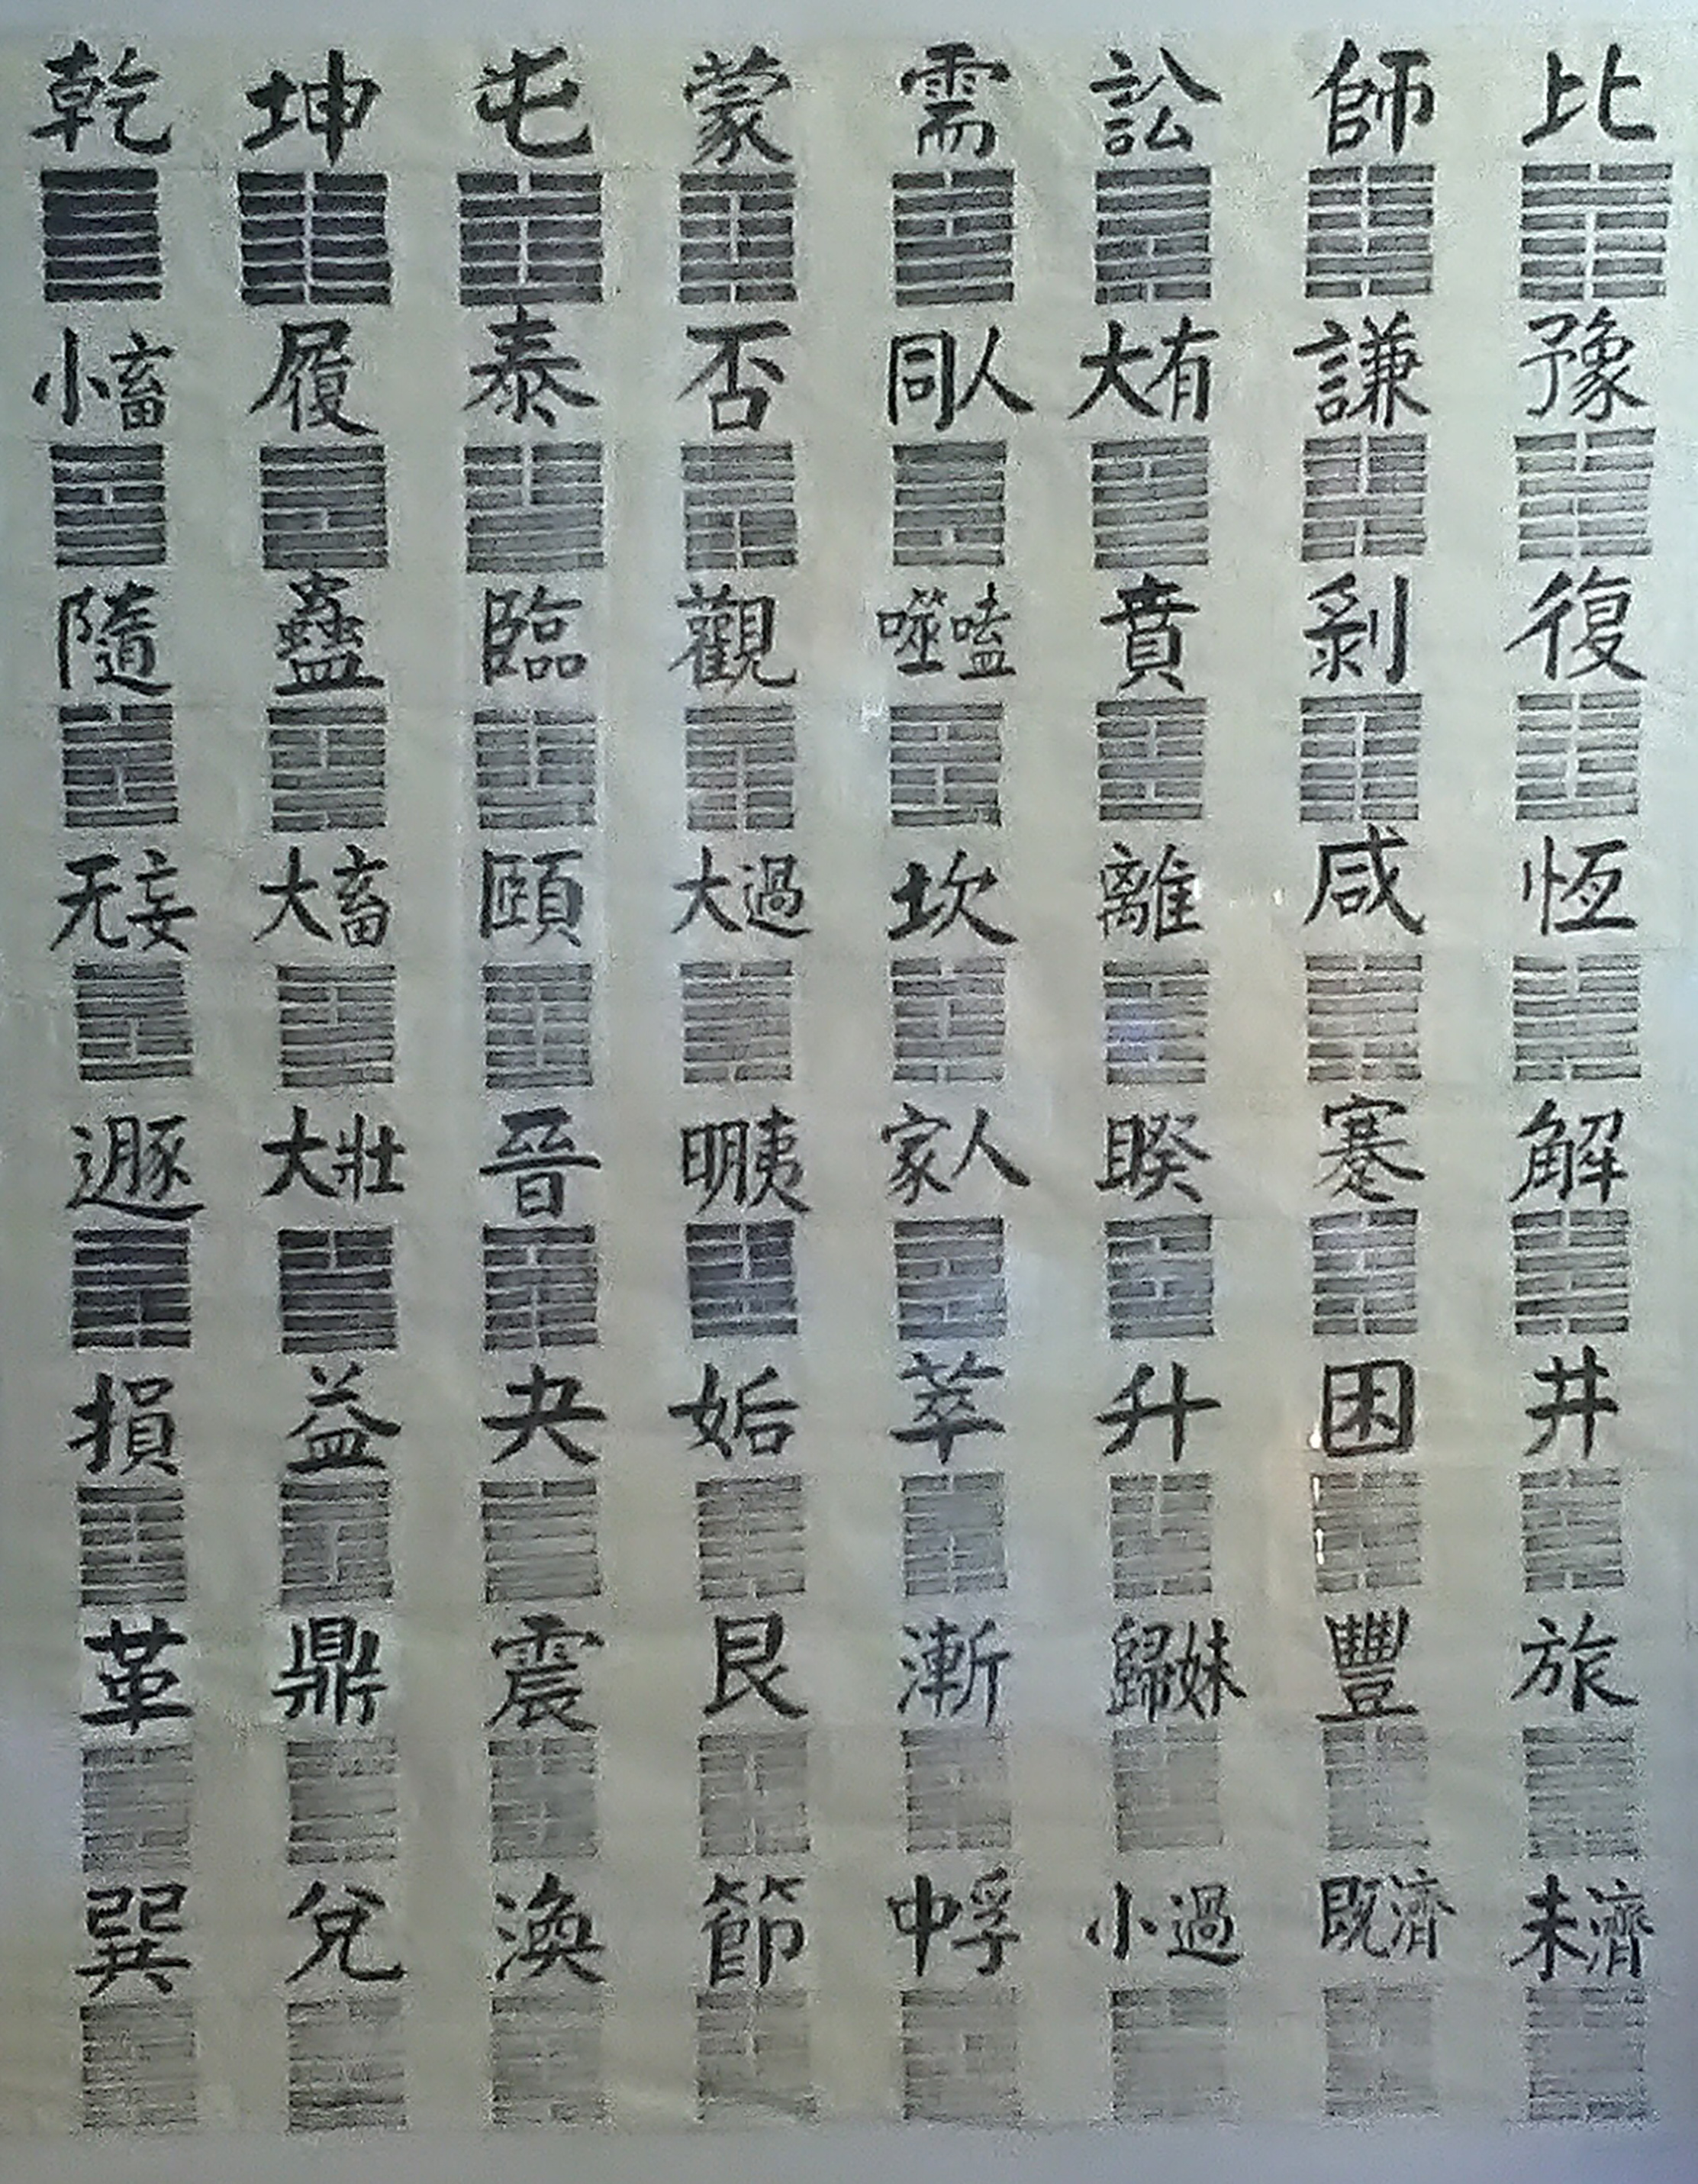 乾 坤 屯 蒙 需 訟 師 比
小畜 履 泰 否 同人 大有 謙 豫
隨 蠱 臨 觀 噬嗑 賁 剝 復
无妄 大畜 頤 大過 坎 離 咸 恆
遯 大壯 晉 明夷 家人 睽 蹇 解
損 益 夬 姤 萃 升 困 井
革 鼎 震 艮 漸 歸妹 豐 旅
巽 兌 渙 節 中孚 小過 既濟 未濟